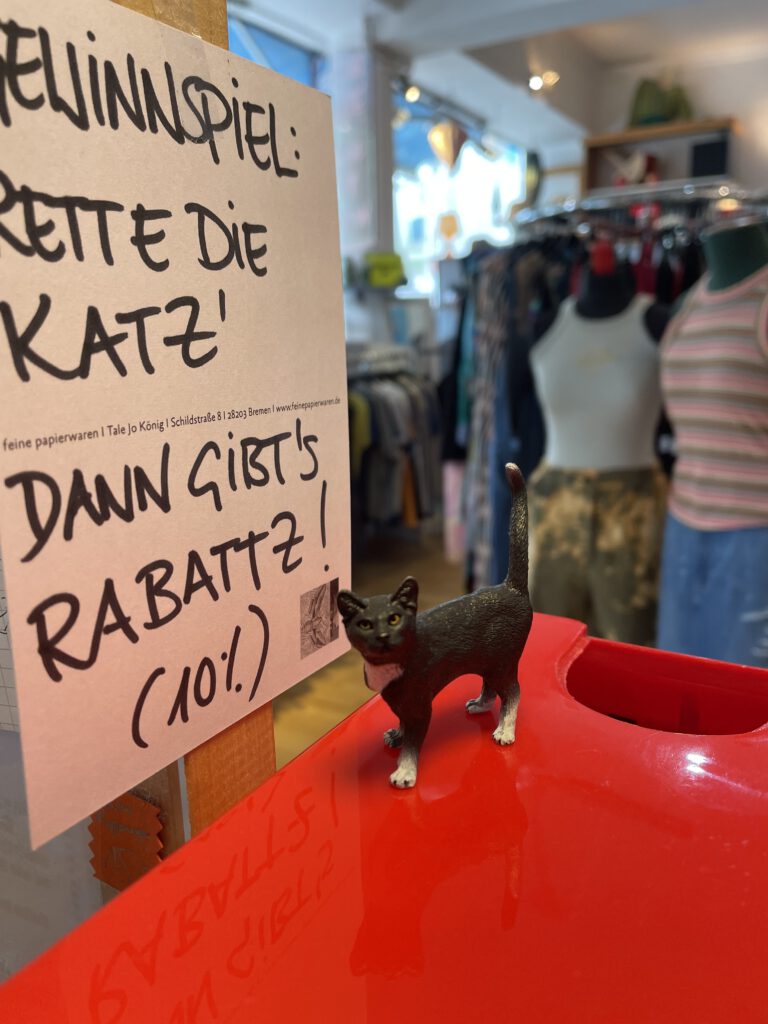 GEWINNSPIEL:
RETTE DIE
KATZ'
feine papierwaren I Tale Jo König I Schildstraße 8 I 28203 Bremen I www.feinepapierwaren.de
DANN GIBT'S
RABATTZ!
(10%)